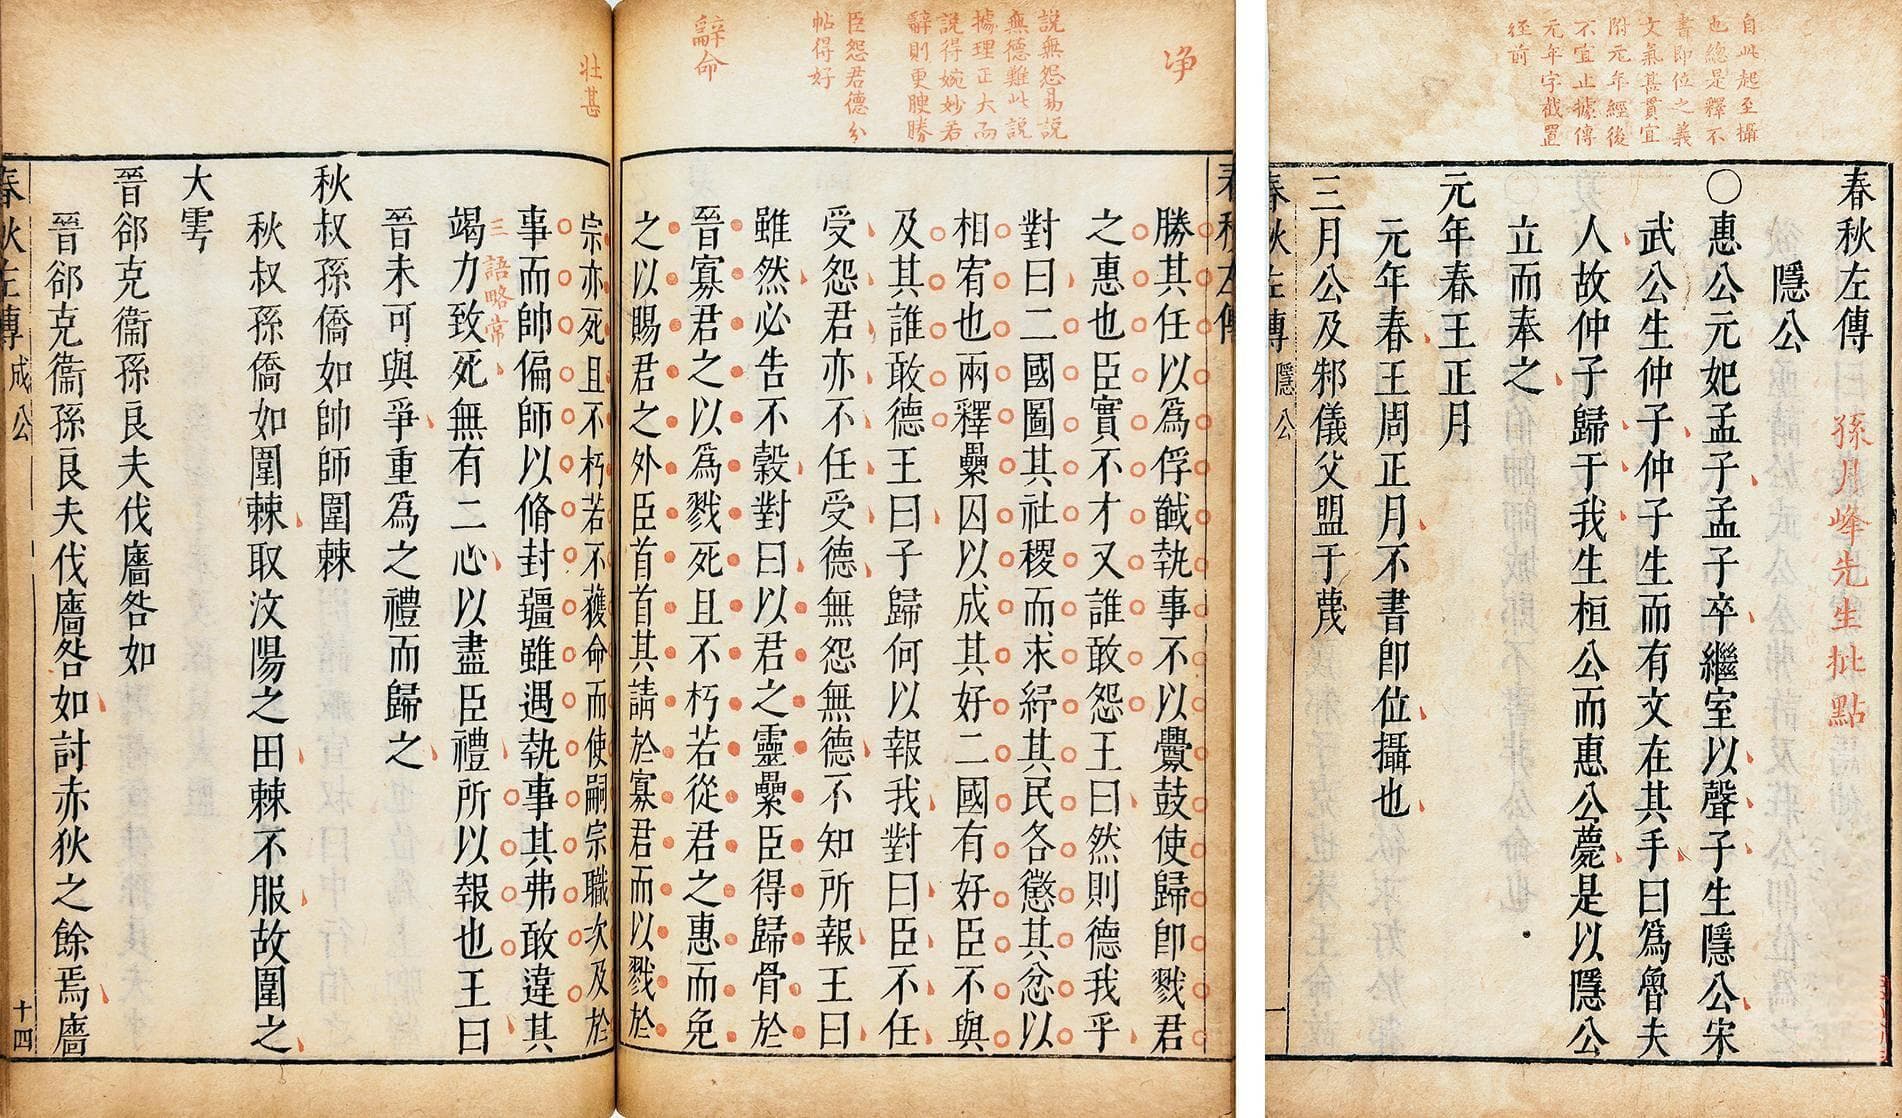 自此起至攝
也總是釋不
書即位之義
文氣甚貫宜
附元年經後
不宜止據傳
元年字截置
經前
春秋左傳
孫月峰先生批點
隱公
〇惠公元妃孟子孟子卒繼室以聲子生隱公宋
武公生仲子仲子生而有文在其手曰爲魯夫
人故仲子歸于我生桓公而惠公薨是以隱公
立而奉之
元年春王正月
元年春王周正月不書卽位攝也
三月公及邾儀父盟于蔑
春秋左傳 隱公 一
淨
說無怨易說
無德難此說
據理正大而
說得婉妙若
辭則更腴勝
臣怨君德分
帖得好
辭命
春秋左傳
勝其任以爲俘馘執事不以釁鼓使歸卽戮君
之惠也臣實不才又誰敢怨王曰然則德我乎
對曰二國圖其社稷而求紓其民各懲其忿以
相宥也兩釋纍囚以成其好二國有好臣不與
及其誰敢德王曰子歸何以報我對曰臣不任
受怨君亦不任受德無怨無德不知所報王曰
雖然必告不穀對曰以君之靈纍臣得歸骨於
晉寡君之以爲戮死且不朽若從君之惠而免
之以賜君之外臣首首其請於寡君而以戮於
壯甚
宗亦死且不朽若不獲命而使嗣宗職次及於
事而帥偏師以脩封疆雖遇執事其弗敢違其
三語略常
竭力致死無有二心以盡臣禮所以報也王曰
晉未可與爭重爲之禮而歸之
秋叔孫僑如帥師圍棘
秋叔孫僑如圍棘取汶陽之田棘不服故圍之
大雩
晉郤克衞孫良夫伐廧咎如
晉郤克衞孫良夫伐廧咎如討赤狄之餘焉廧
春秋左傳 成公 十四